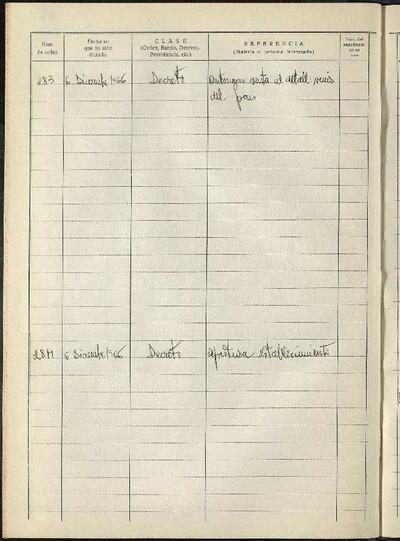 Núm. de orden
Fecha en que ha sido dictado
CLASE
(Orden, Bando, Decreto, Providencia, etc.)
REFERENCIA
(Materia o persona interesada)
Núm. del expediente en su caso
283 6 Diciembre 1966 Decreto Autorizar venta al detall vinos
del país
284 6 Diciembre 1966 Decreto Apertura establecimiento